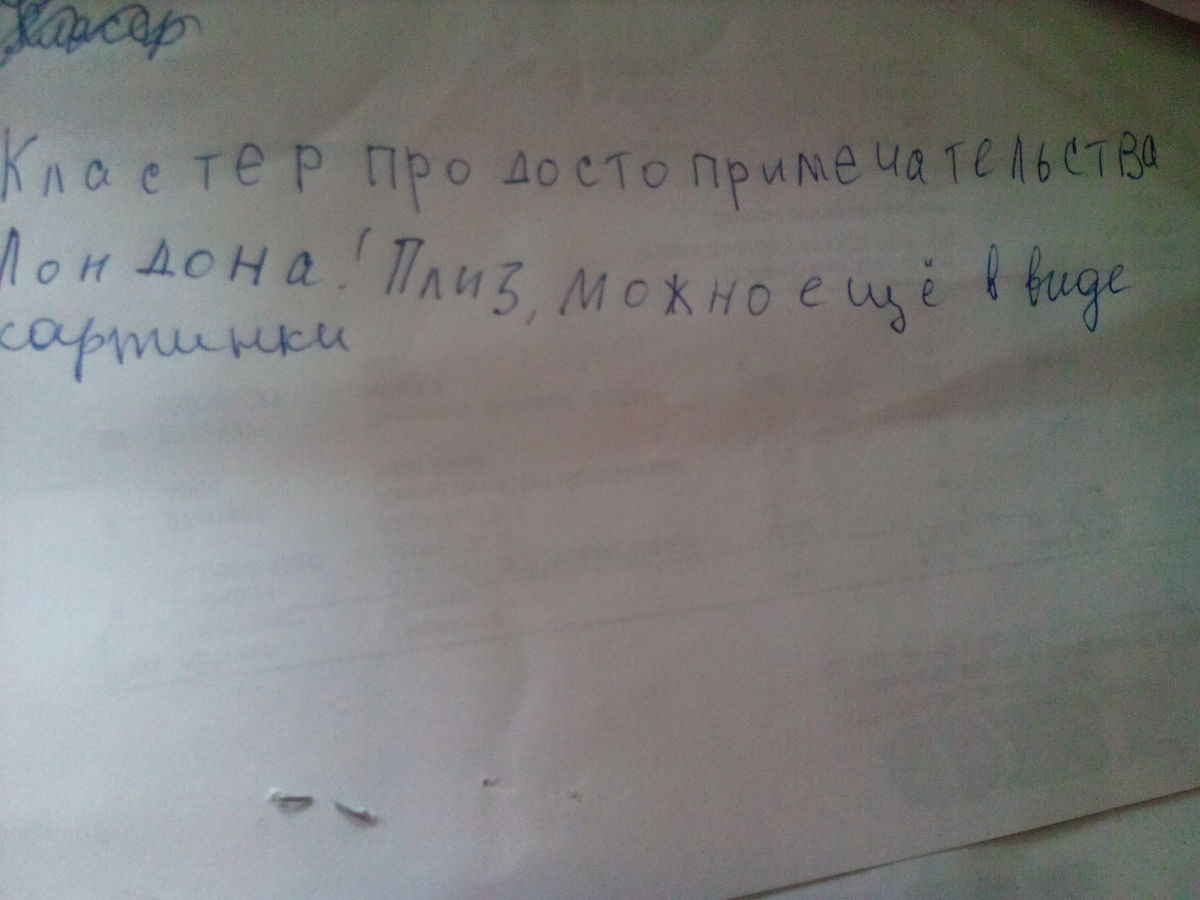 Кластер про достопримечательства
Лондона! Плиз, можно ещё в виде
картинки